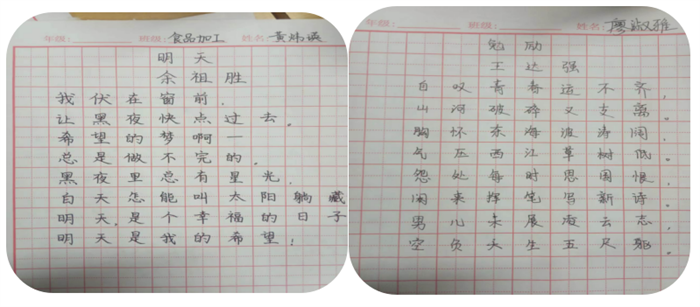 年级： 班级：食品加工 姓名：黄炜瑛
明天
余祖胜
我伏在窗前，
让黑夜快点过去。
希望的梦啊一
总是做不完的。
黑夜里总有星光，
白天怎能叫太阳躺藏
明天，是个幸福的日子
明天，是我的希望！
年级： 班级： 姓名：廖淑雅
勉励
王达强
自叹青春运不齐，
山河破碎又支离。
胸怀东海波涛阔，
气压西江草树低。
怨处每时思国恨，
闲来挥笔写新诗。
男儿未展凌云志，
空负天生五尺躯。